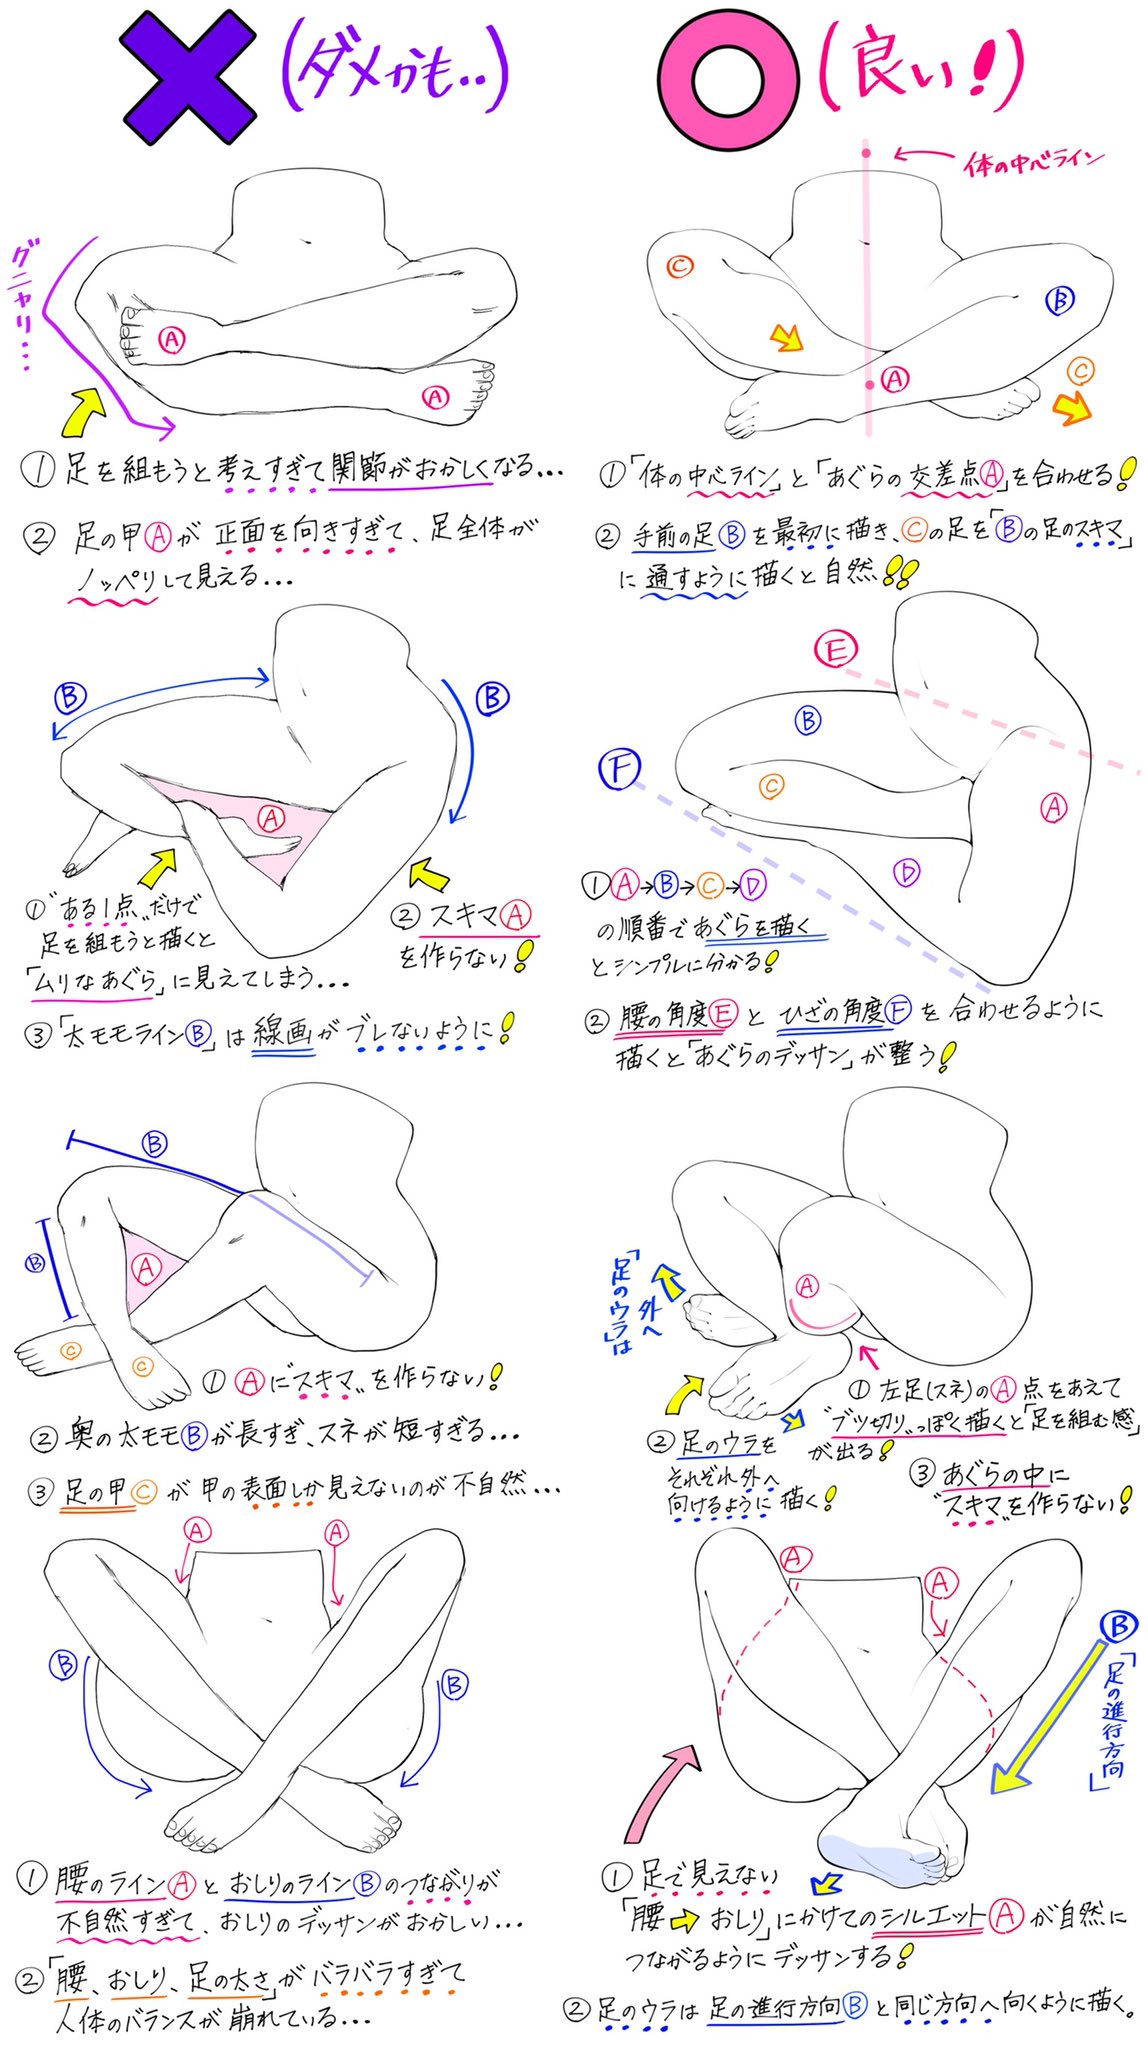 (ダメかも..)
(良い!)
体の中心ライン
グニャリ...
A
A
C
B
A
C
①足を組もうと考えすぎて関節がおかしくなる...
②足の甲Ⓐが正面を向きすぎて、足全体が
ノッペリして見える...
①「体の中心ライン」と「あぐらの交差点Ⓐ」を合わせる!
②手前の足Ⓑを最初に描き、Ⓒの足を「Ⓑの足のスキマ」
に通すように描くと自然!!
B
B
A
①"ある1点"だけで
足を組もうと描くと
「ムリなあぐら」に見えてしまう...
②スキマⒶ
を作らない!
③「太モモラインⒷ」は線画がブレないように!
E
B
F
C
A
D
①Ⓐ→Ⓑ→Ⓒ→Ⓓ
の順番であぐらを描く
とシンプルに分かる!
②腰の角度Ⓔとひざの角度Ⓕを合わせるように
描くと「あぐらのデッサン」が整う!
B
B
A
C
C
①Ⓐに"スキマ"を作らない!
②奥の太モモⒷが長すぎ、スネが短すぎる...
③足の甲Ⓒが甲の表面しか見えないのが不自然...
「足のウラ」は
外へ
A
①左足(スネ)のⒶ点をあえて
"ブツ切り"っぽく描くと「足を組む感」
が出る!
②足のウラを
それぞれ外へ
向けるように描く!
③あぐらの中に
"スキマ"を作らない!
A
A
B
B
①腰のラインⒶとおしりのラインⒷのつながりが
不自然すぎて、おしりのデッサンがおかしい...
②「腰、おしり、足の太さ」がバラバラすぎて
人体のバランスが崩れている...
A
A
B
「足の進行方向」
①足で見えない
「腰→おしり」にかけてのシルエットⒶが自然に
つながるようにデッサンする!
②足のウラは足の進行方向Ⓑと同じ方向へ向くように描く。